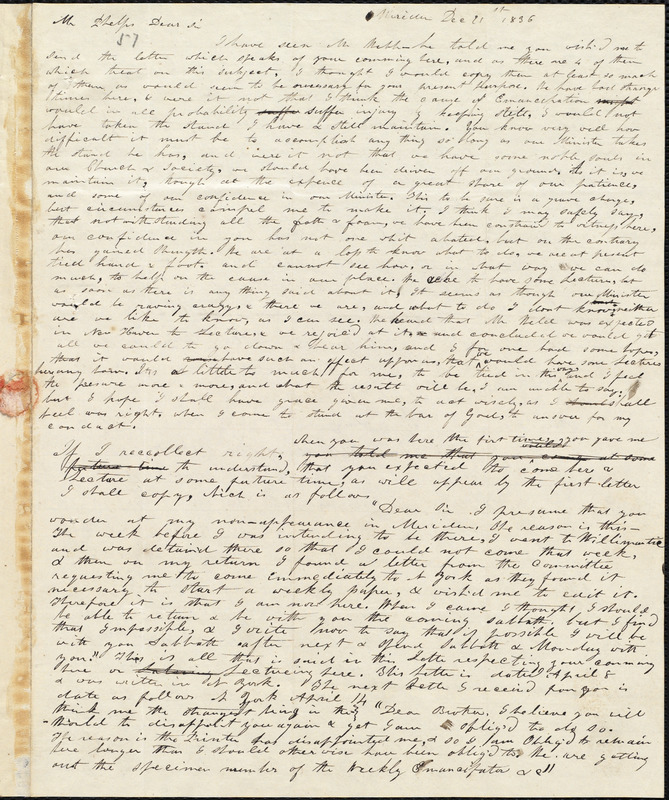 Meriden Dec 21st 1836
Mr Phelps Dear Sir
57
I have seen Mr he told me you wish'd me to
send the letter which speaks of your comming here, and as there are 4 of them
which treat on this subject, I thought I would copy them at least so much
of them, as would seem to be necessary for your present purpose. We have had strange
times here, & were it not that I think the cause of Emancipation
would in all probability suffer injury by keeping still, I would not
have taken the stand I have & still maintain. You know very well how
difficult it must be to accomplish any thing so long as our Minister takes
the stand he has, and were it not that we have some noble souls in
our Church & Society, we should have been driven off our ground, As it is, we
maintain it, though at the expence of a great share of our patience,
and some of our confidence in our Minister. This to be sure is a grave charge,
but circumstances compel me to make it. I think I may safely say,
that notwithstanding all the froth & foam, we have been constrain'd to witness here,
our confidence in you has not one whit abated. but on the contrary
has gained strength. We are at a loss to know what to do, we are at present
tied hand & foot. and cannot see how, or in what way we can do
much, to help on the cause in our place. We like to have some Lectures, but
as soon as there is any thing said about it, It seems as though our Minister
would be raving crazy, & there we are, and what to do I dont know, neither
are we like to know, as I can see. We heard that Mr Weld was expected
in New Haven to Lecture, & we rejoiced at it, & and concluded we would get
all we could to go down & hear him, and I for one had some hopes,
that it would have such an effect uppon us, that we would have some Lectures
here. It is a little to much for me, to be tied in this way and I feel
the presure more & more, and what the result will be, I am unable to say,
but I hope I shall have grace given me, to act wisely, as I shall
feel was right, when I come to stand at the bar of God, to answer for my
conduct.
When you was here the first time, you gave me
If I reccollect right, you told me that you, at some
future time to understand, that you expected to come here &
Lecture at some future time, as will appear by the first letter
I shall copy, which is as follows
"Dear Sir I presume that you
wonder at my non-appearance in Meriden. The reason is this—
The week before I was intending to be there, I went to Willimantic
and was detain'd there so that I could not come that week,
& then on my return I found a letter from the Committee
requesting me to come immediately to N York as they found it
necessary to start a weekly paper, & wish'd me to edit it.
Therefore it is that I am now here. When I came I thought I should
be able to return & be with you the coming sabbath. but I find
that impossible, & I write now to say that if possible I will be
with you Sabbath after next & spend Sabbath & Monday with
you" This is all that is said in this Letter respecting your comming
here or Lecturing here. This letter is dated April 8
& was written in N York. The next letter I receiv'd from you is
date as follows N York April 14
"Dear Brother, I believe you will
think me the strangest thing in the
World to disappoint you again & yet I am oblig'd to do so.
The reason is the Printer has disappointed me, & so I am oblig'd to remain
here longer than I should otherwise have been oblig'd to. We are getting
out the specimen number of the Weekly Emancipator &c"